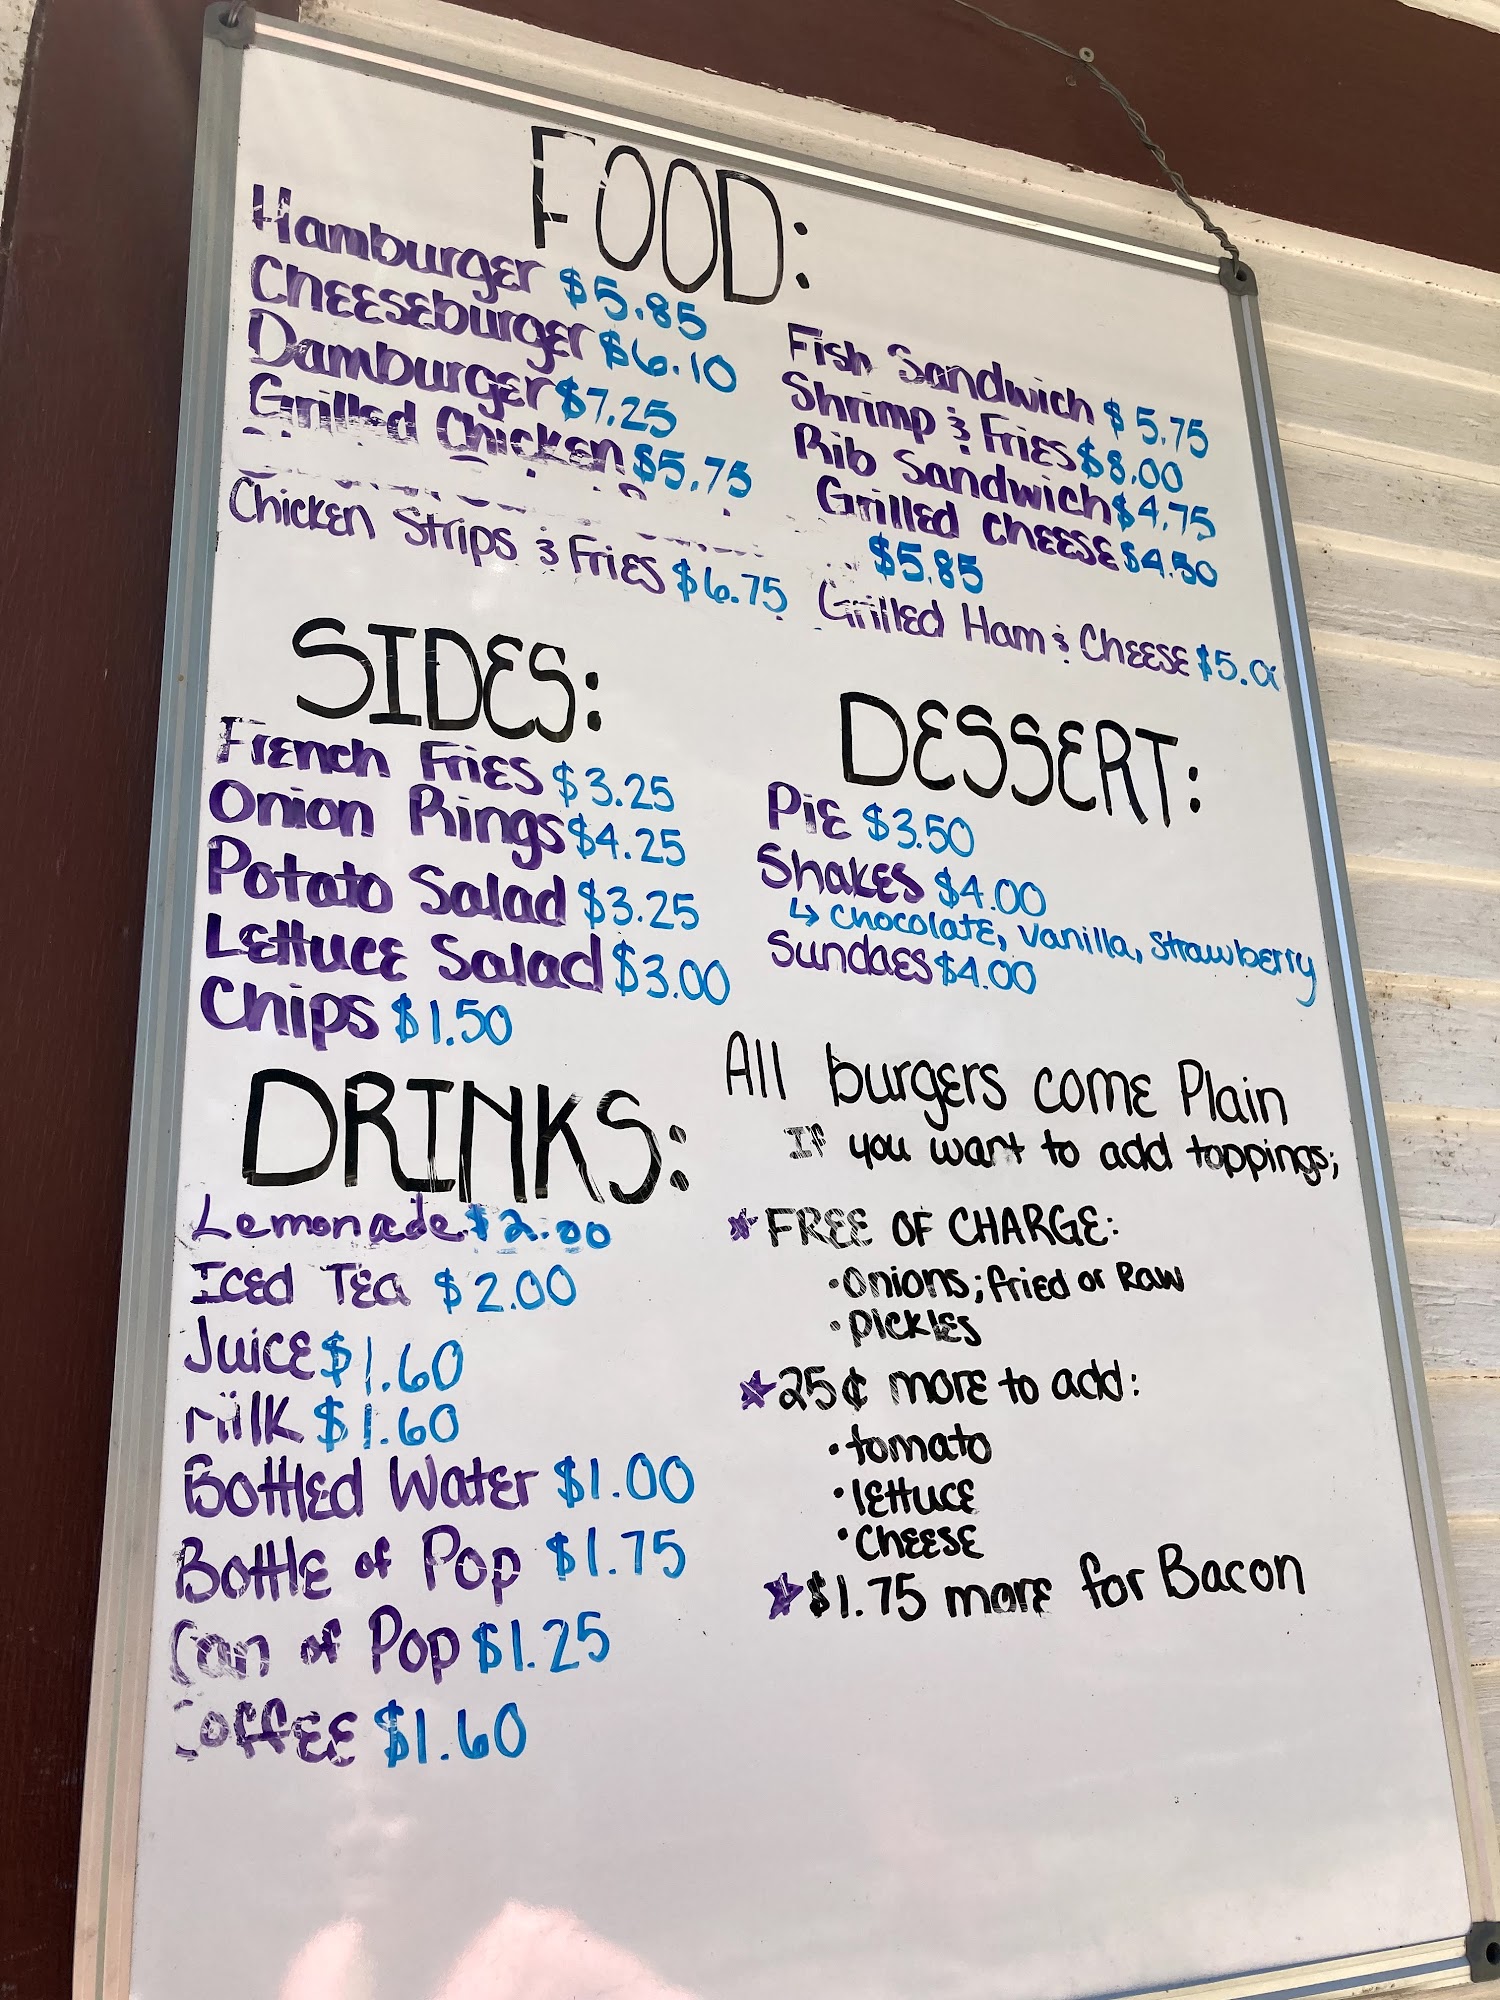 FOOD:
Hamburger $5.85
Cheeseburger $6.10
Damburger $7.25
Grilled Chicken $5.75
Chicken Strips & Fries $6.75
Fish Sandwich $5.75
Shrimp & Fries $8.00
Rib Sandwich $4.75
Grilled Cheese $4.50
$5.85
Grilled Ham & Cheese
SIDES:
French Fries $3.25
Onion Rings $4.25
Potato Salad $3.25
Lettuce Salad $3.00
Chips $1.50
DESSERT:
Pie $3.50
Shakes $4.00
↳ Chocolate, Vanilla, Strawberry
Sundaes $4.00
DRINKS:
Lemonade $2.00
Iced Tea $2.00
Juice $1.60
Milk $1.60
Bottled Water $1.00
Bottle of Pop $1.75
Can of Pop $1.25
Coffee $1.60
All burgers come Plain
If you want to add toppings;
★ FREE OF CHARGE:
• Onions; fried or Raw
• Pickles
★ 25¢ more to add:
• tomato
• lettuce
• Cheese
★ $1.75 more for Bacon